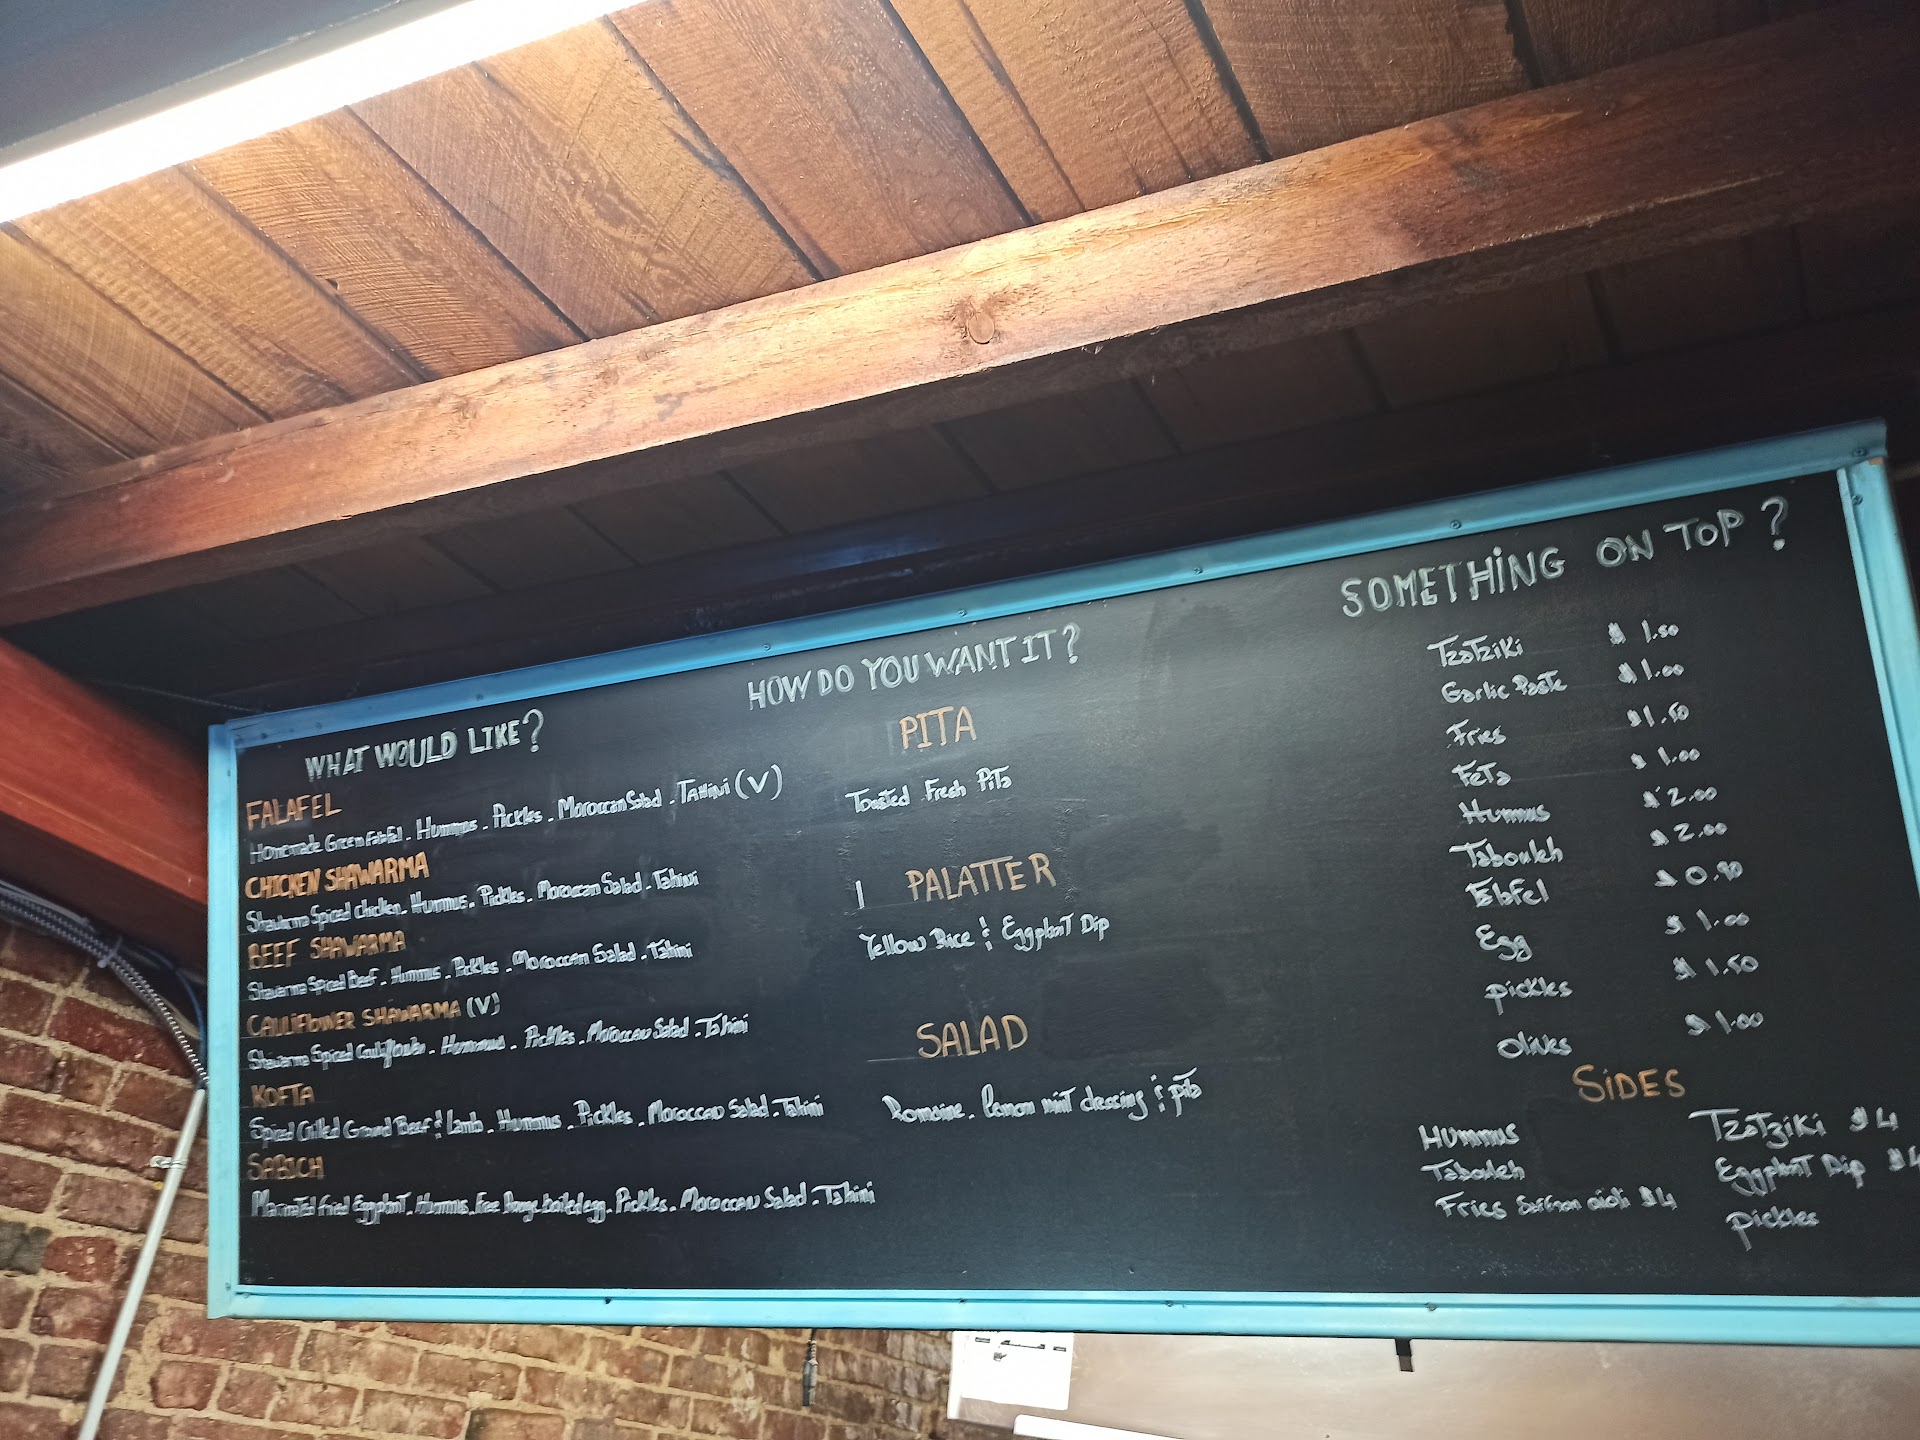 WHAT WOULD LIKE?
FALAFEL
Homemade Green Falafel - Hummus - Pickles - Moroccan Salad - TAHiNi (V)
CHICKEN SHAWARMA
Shawarma Spiced chicken - Hummus - Pickles - Moroccan Salad - Tahini
BEEF SHAWARMA
Shawarma Spiced Beef - Hummus - Pickles - Moroccan Salad - Tahini
CAULiFlOWER SHAWARMA (V)
Shawarma Spiced Cauliflower - Hummus - Pickles - Moroccan Salad - Tahini
KOFTA
Spiced Grilled Ground Beef & Lamb - Hummus - Pickles - Moroccan Salad - Tahini
SABICH
Marinated fried Eggplant - Hummus - Free Range boiled egg - Pickles - Moroccan Salad - Tahini
HOW DO YOU WANT IT?
PITA
Toasted Fresh Pita
PALATTER
Yellow Rice & Eggplant Dip
SALAD
Romaine - lemon mint dressing & pita
SOMETHiNG ON TOP?
Tzatziki $1.50
Garlic Paste $1.00
Fries $1.50
Feta $1.00
Hummus $2.00
Tabouleh $2.00
Falafel $0.90
Egg $1.00
pickles $1.50
Olives $1.00
SiDES
Hummus Tzatziki $4
Tabouleh Eggplant Dip $4
Fries Saffron aioli $4 pickles